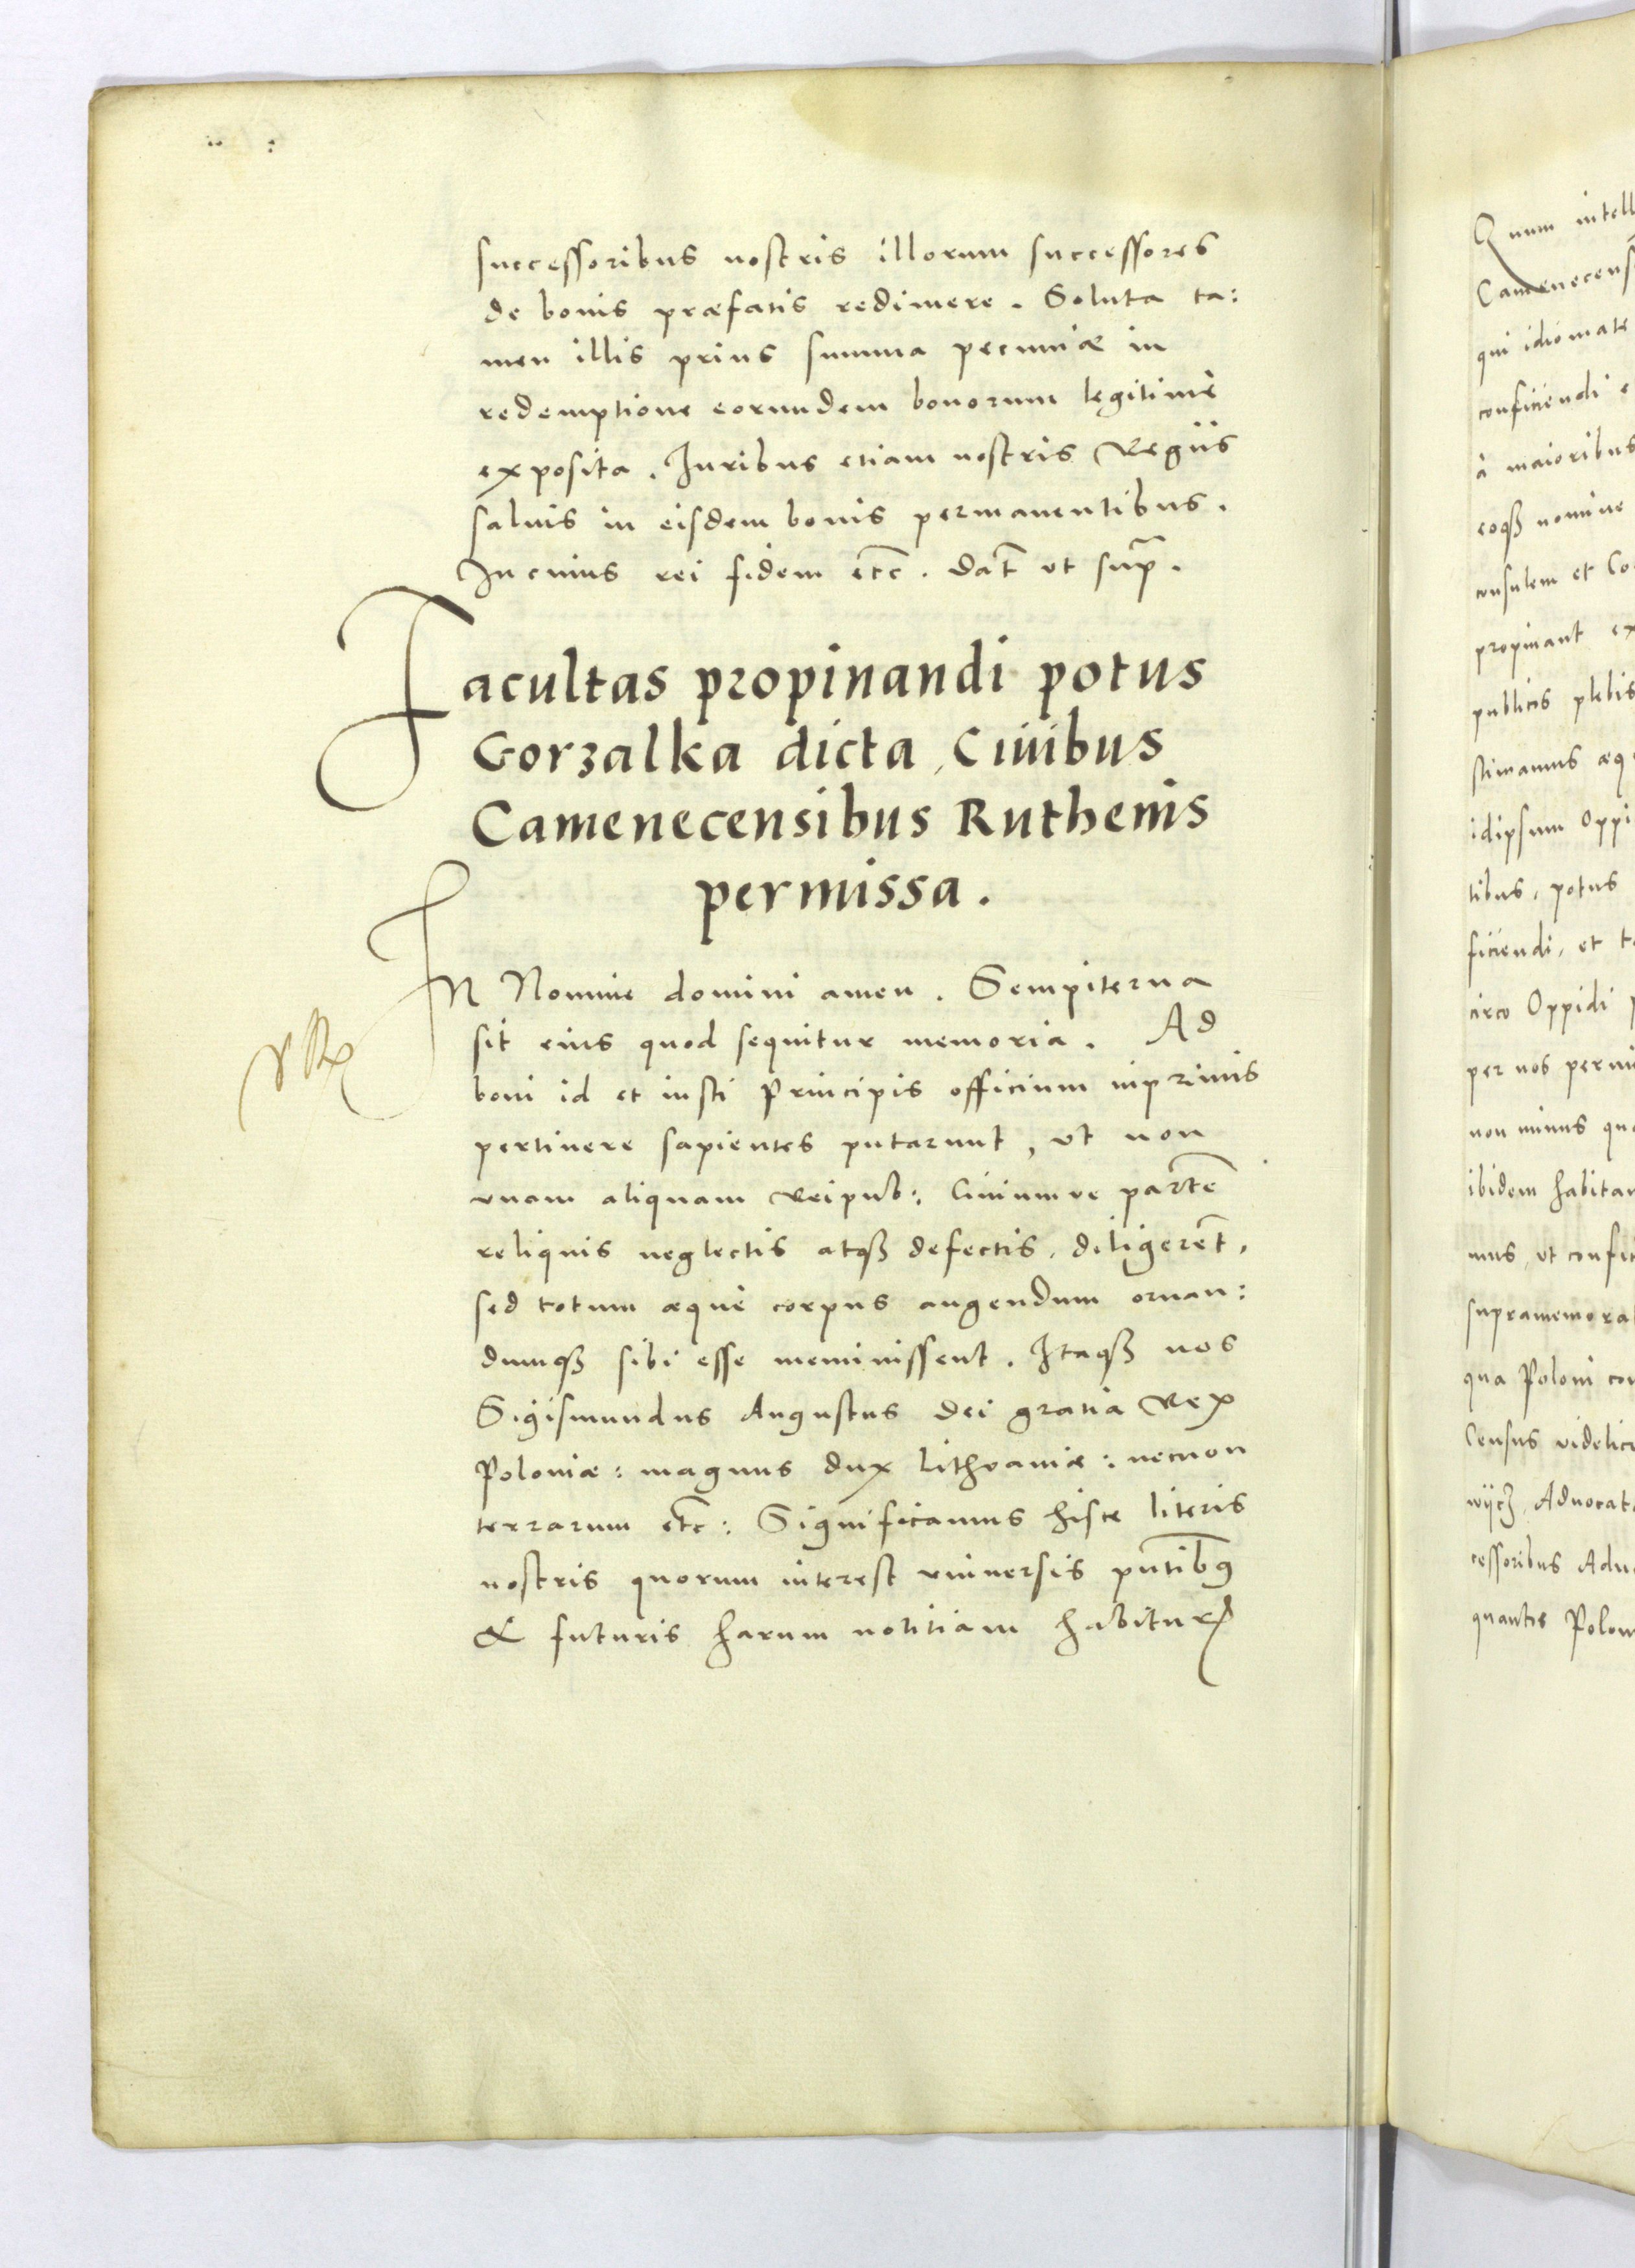 successoribus nostris illorum successores
de bonis præfatis redimere. Soluta ta:
men illis prius summa pecuniæ in
redemptione eorundem bonorum legitimè
exposita. Juribus etiam nostris Regiis
saluis in eisdem bonis permanentibus.
In cuius rei fidem etc̃. dat̃ vt sup̃.
Facultas propinandi potus
Gorzalka dicta, Ciuibus
Camenecensibus Ruthenis
permissa.
IN Nomine domini amen. Sempiterna
sit eius quod sequitur memoria. Ad
boni id et iusti Principis officium inprimis
pertinere sapientes putarunt, vt non
vnam aliquam Reipub: Ciuiumve partẽ
reliquis neglectis atqꝫ defectis, diligerent̃,
sed totum æquè corpus augendum ornan:
dumqꝫ sibi esse meminissent. Itaqꝫ nos
Sigismundus Augustus dei gratia Rex
Poloniæ: magnus dux Lithvaniæ: necnon
terrarum etc̃: Significamus hisce literis
nostris quorum interest vniuersis pñtibꝰ
& futuris harum notitiam habiturꝭ
Quum intell
Camenecens
qui idiomate
conficiendi e
à maioribus
eoqꝫ nomine
consulem et Co
propinant ex
publicis plebis
stimamus æq
idipsum Oppi
tibus, potus
ficiendi, et t
circo Oppidi p
per nos permi
non minus qu
ibidem habitan
mus, vt confi
supramemorat
qua Poloni con
Census videlic
wijcz Aduocat
cessoribus Adu
quantis Polon